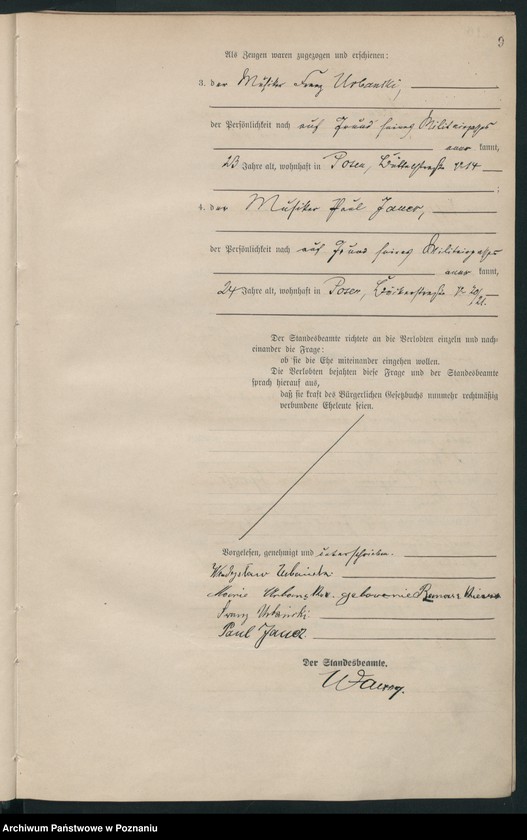 9
Als Zeugen waren zugezogen und erschienen:
3. der Musiker Franz Urbanski,
der Persönlichkeit nach auf Grund seines Militärpasses
aner kannt,
23 Jahre alt, wohnhaft in Posen, Büttelstraße № 14
;
4. der Musiker Paul Jauer,
der Persönlichkeit nach auf Grund seines Militärpasses
aner kannt,
24 Jahre alt, wohnhaft in Posen, Bäckerstraße № 20/21.
Der Standesbeamte richtete an die Verlobten einzeln und nach-
einander die Frage:
ob sie die Ehe miteinander eingehen wollen.
Die Verlobten bejahten diese Frage und der Standesbeamte
sprach hierauf aus,
daß sie kraft des Bürgerlichen Gesetzbuchs nunmehr rechtmäßig
verbundene Eheleute seien.
Vorgelesen, genehmigt und unterschrieben.
Franz Urbański
Paul Jauer
Der Standesbeamte.
Archiwum Państwowe w Poznaniu